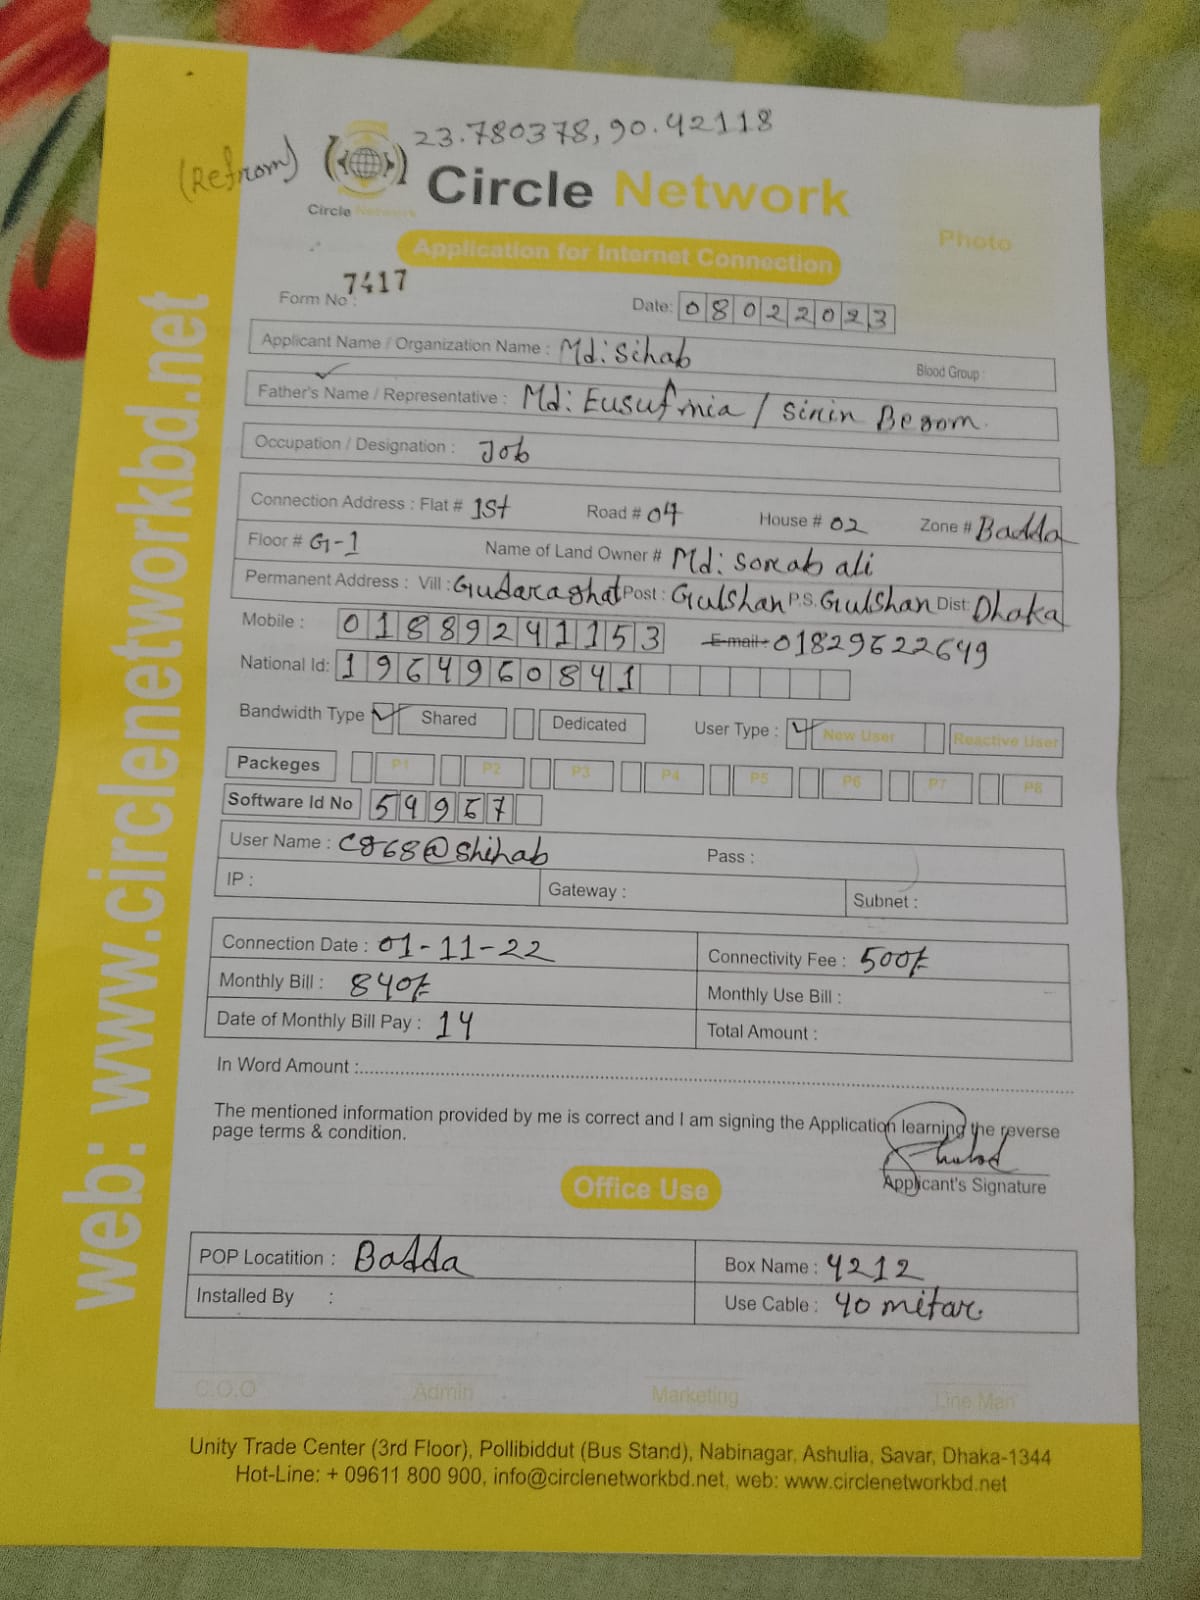 23.780378, 90.42118
(Refrom)
Circle Network
Circle Network
Photo
Application for Internet Connection
Form No : 7417
Date: 08022023
Applicant Name / Organization Name : Md: Sihab Blood Group :
Father's Name / Representative : Md: Eusuf mia / Sirin Begom.
Occupation / Designation : Job
Connection Address : Flat # 1st Road # 04 House # 02 Zone # Badda
Floor # G-1 Name of Land Owner # Md: Sorab ali
Permanent Address : Vill : Gudaraghat Post : Gulshan P.S. Gulshan Dist: Dhaka
Mobile : 01889241153 E-mail: 01829622649
National Id: 1964960841
Bandwidth Type Shared Dedicated User Type : New User Reactive User
Packeges P1 P2 P3 P4 P5 P6 P7 P8
Software Id No 59967
User Name : C868@shihab Pass :
IP : Gateway : Subnet :
Connection Date : 01-11-22 Connectivity Fee : 500/-
Monthly Bill : 840/- Monthly Use Bill :
Date of Monthly Bill Pay : 14 Total Amount :
In Word Amount :
The mentioned information provided by me is correct and I am signing the Application learning the reverse
page terms & condition.
Applicant's Signature
Office Use
POP Locatition : Badda Box Name : 4212
Installed By : Use Cable : 40 mitar.
C.O.O Admin Marketing Line Man
Unity Trade Center (3rd Floor), Pollibiddut (Bus Stand), Nabinagar, Ashulia, Savar, Dhaka-1344
Hot-Line: + 09611 800 900, info@circlenetworkbd.net, web: www.circlenetworkbd.net
web: www.circlenetworkbd.net